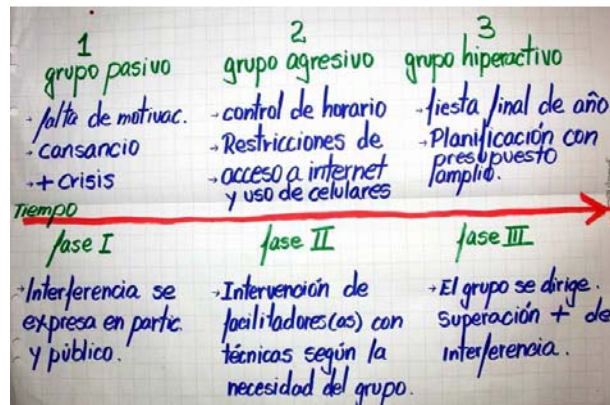 1
grupo pasivo
→ falta de motivac.
→ cansancio
→ + crisis
2
grupo agresivo
→ control de horario
→ Restricciones de
→ acceso a internet
y uso de celulares
3
grupo hiperactivo
→ fiesta final de año
→ Planificación con
presupuesto
amplio.
Tiempo
fase I
→ Interferencia se
expresa en partic.
y público.
fase II
→ Intervención de
facilitadores(as) con
técnicas según la
necesidad del grupo.
fase III
→ El grupo se dirige.
Superación + de
interferencia.